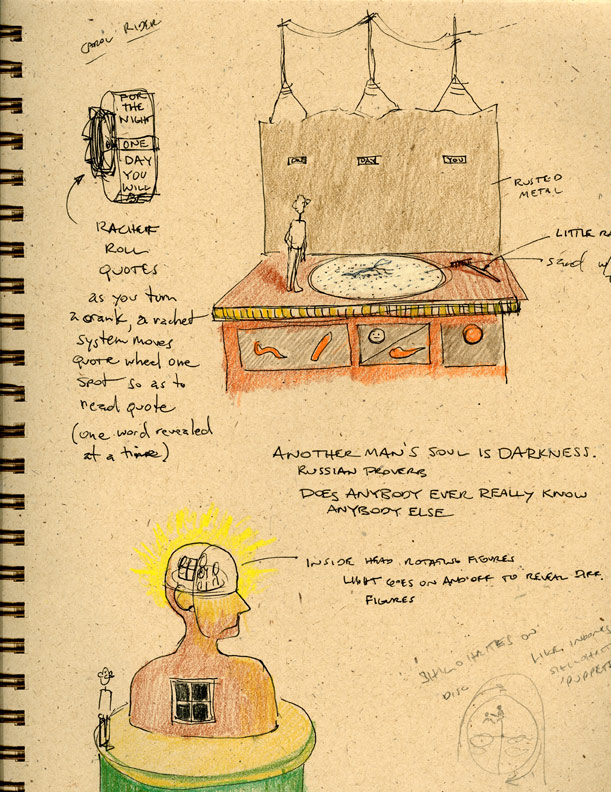 CAROL RIDER
FOR
THE
NIGHT
ONE
DAY
YOU
WILL
BE
RACHET
ROLL
QUOTES
as you turn
a crank, a rachet
system moves
quote wheel one
spot so as to
read quote
(one word revealed
at a time)
ONE DAY YOU
RUSTED
METAL
LITTLE
sand
ANOTHER MAN'S SOUL IS DARKNESS.
RUSSIAN PROVERB
DOES ANYBODY EVER REALLY KNOW
ANYBODY ELSE
INSIDE HEAD ROTATING FIGURES
LIGHT GOES ON AND OFF TO REVEAL DIFF.
FIGURES
SILHOUETTES ON
DISC
LIKE
PUPPETS